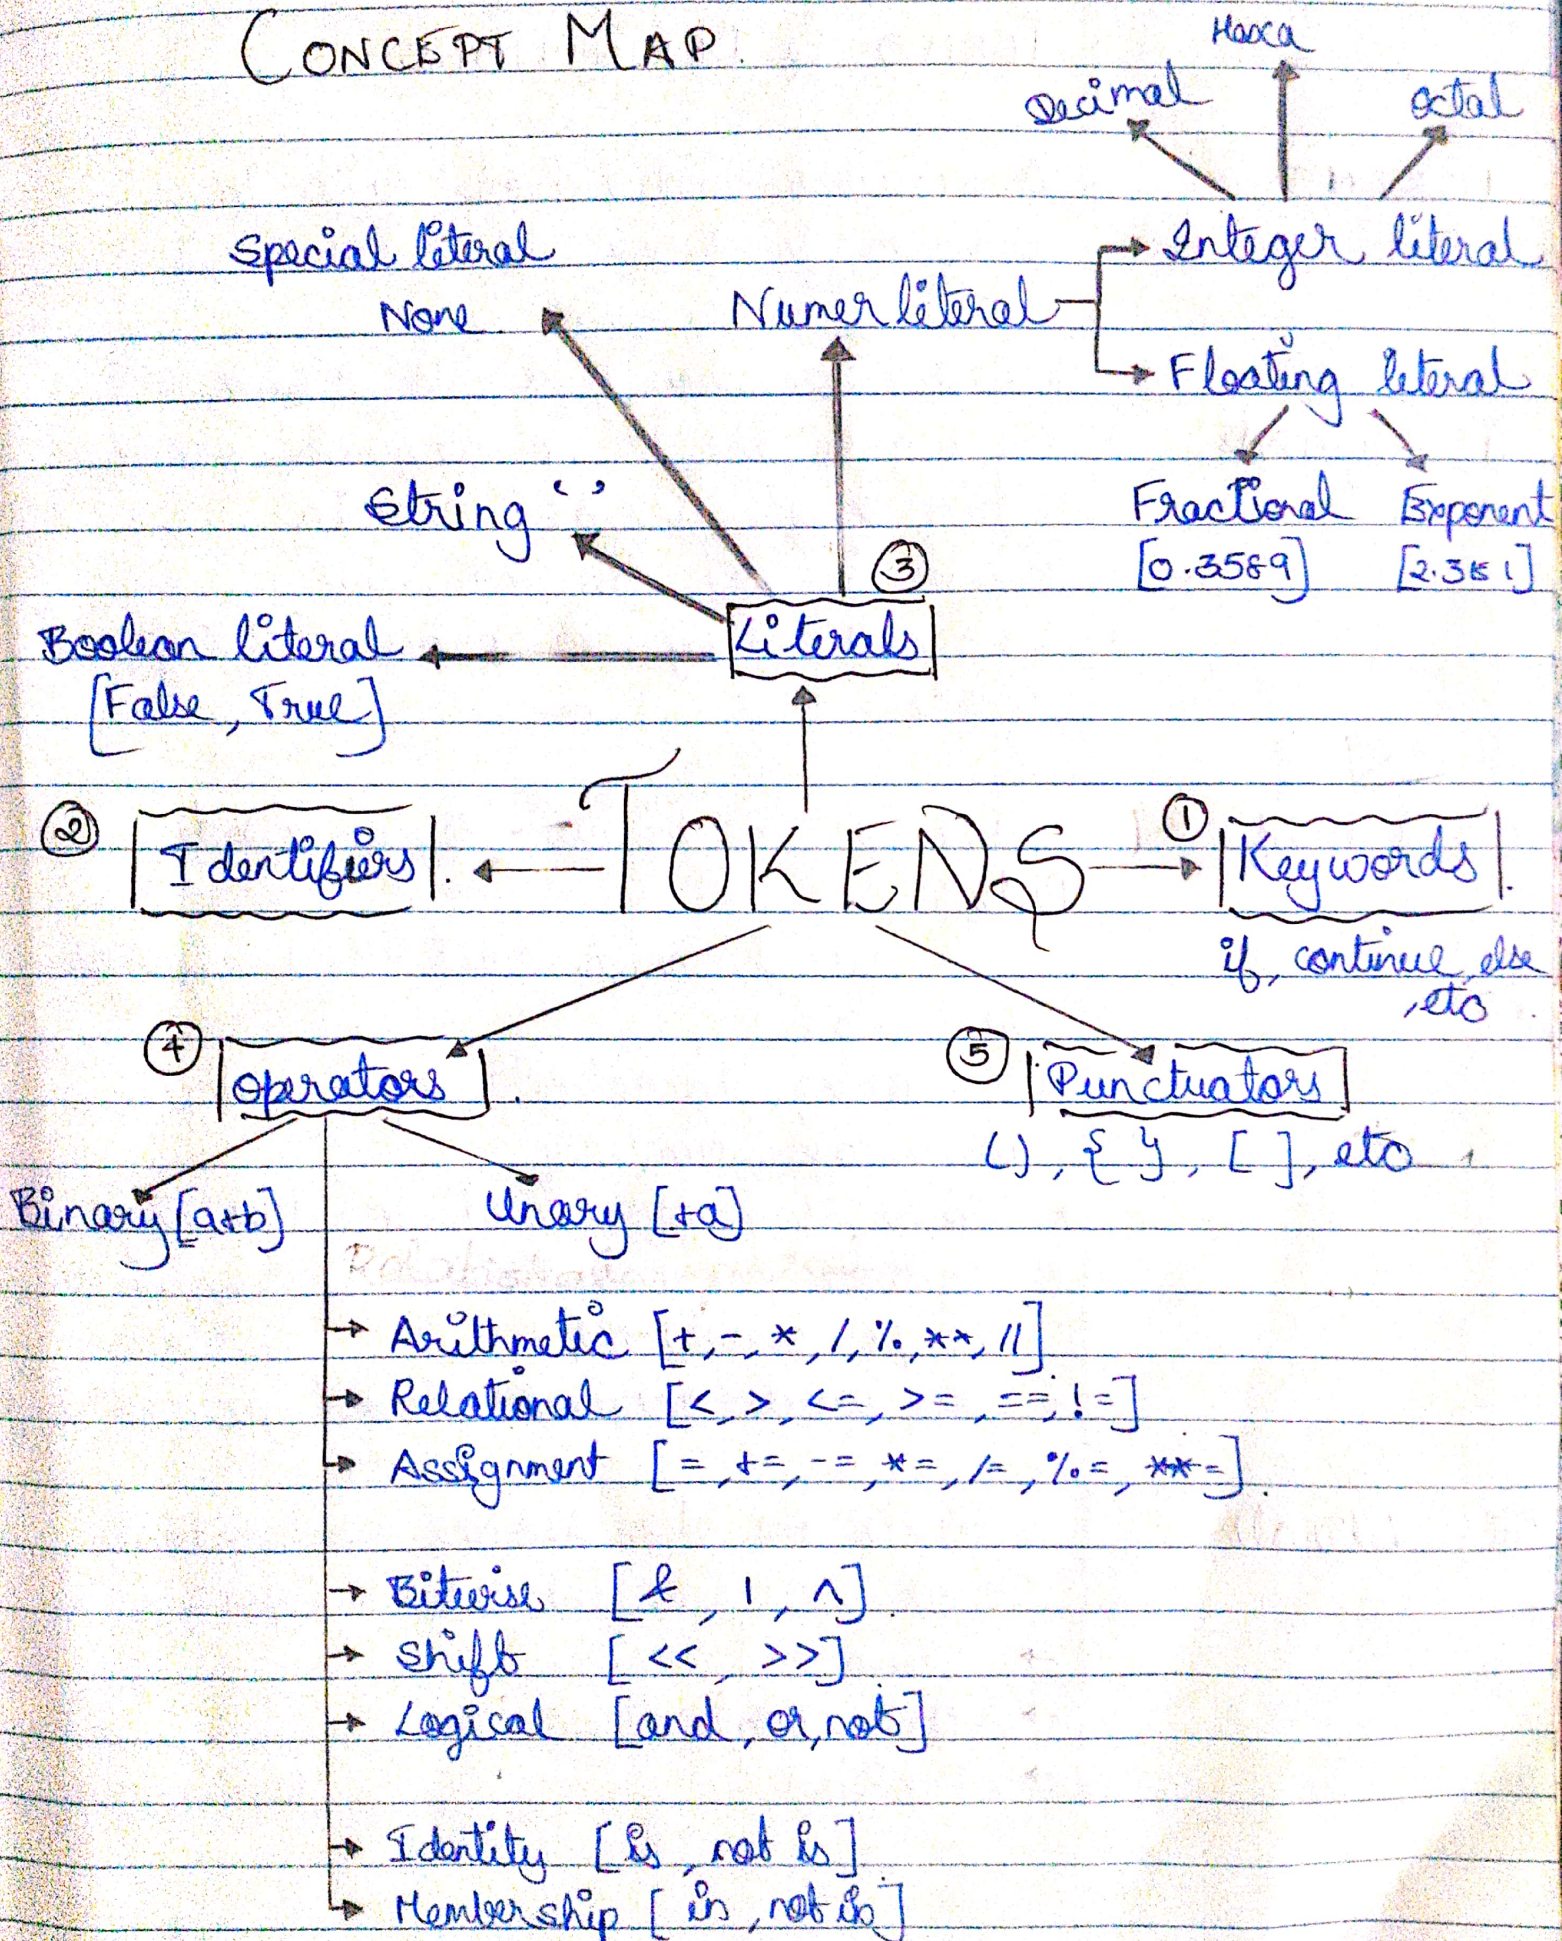 CONCEPT MAP.
Hexa
Decimal
Octal
Special literal
None
Numer literal
Integer literal
Floating literal
String ‘ ’
Fractional
[0.3589]
Exponent
3
Literals
Boolean literal
[False, True]
2
Identifiers
TOKENS
1
Keywords
if, continue, else
, etc
4
Operators
5
Punctuators
( ), { }, [ ], etc
Binary [a+b]
Unary [+a]
Arithmetic [+, -, *, /, %, **, //]
Relational [<, >, <=, >=, ==, !=]
Assignment [=, +=, -=, *=, /=, %=, **=]
Bitwise [&, |, ^]
Shift [<<, >>]
Logical [and, or, not]
Identity [is, not is]
Membership [in, not in]